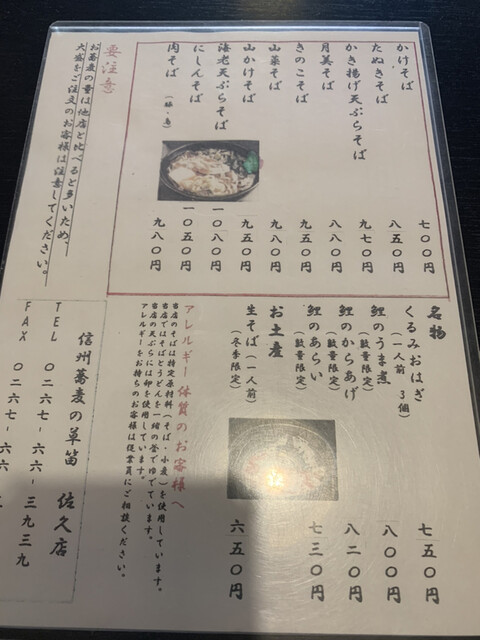 かけそば 七〇〇円
たぬきそば 八五〇円
かき揚げ天ぷらそば 九七〇円
月美そば 八八〇円
きのこそば 九五〇円
山菜そば 九八〇円
山かけそば 九五〇円
海老天ぷらそば 一〇八〇円
にしんそば 一〇五〇円
肉そば 九八〇円
要注意
お蕎麦の量は他店と比べると多いため、
大盛をご注文のお客様は注意してください。
名物
くるみおはぎ 七五〇円
(一人前 3個)
鯉のうま煮 八〇〇円
(数量限定)
鯉のからあげ 八二〇円
(数量限定)
鯉のあらい 七三〇円
(数量限定)
お土産
生そば(一人前) 六五〇円
(冬季限定)
アレルギー体質のお客様へ
当店のそばは特定原材料(そば・小麦)を使用しています。
当店ではそばとうどんを一緒の釜でゆでています。
当店の天ぷらには卵を使用しています。
アレルギーをお持ちのお客様は従業員にご相談ください。
信州蕎麦の草笛 佐久店
TEL 〇二六七-六六-三九三九
FAX 〇二六七-六六-